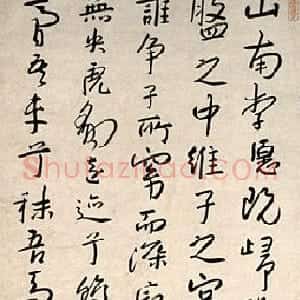 山南李愿既歸
盤之中維子之宮
誰争子所窈而深
無央虎豹遠迹兮
膏吾車兮秣吾馬